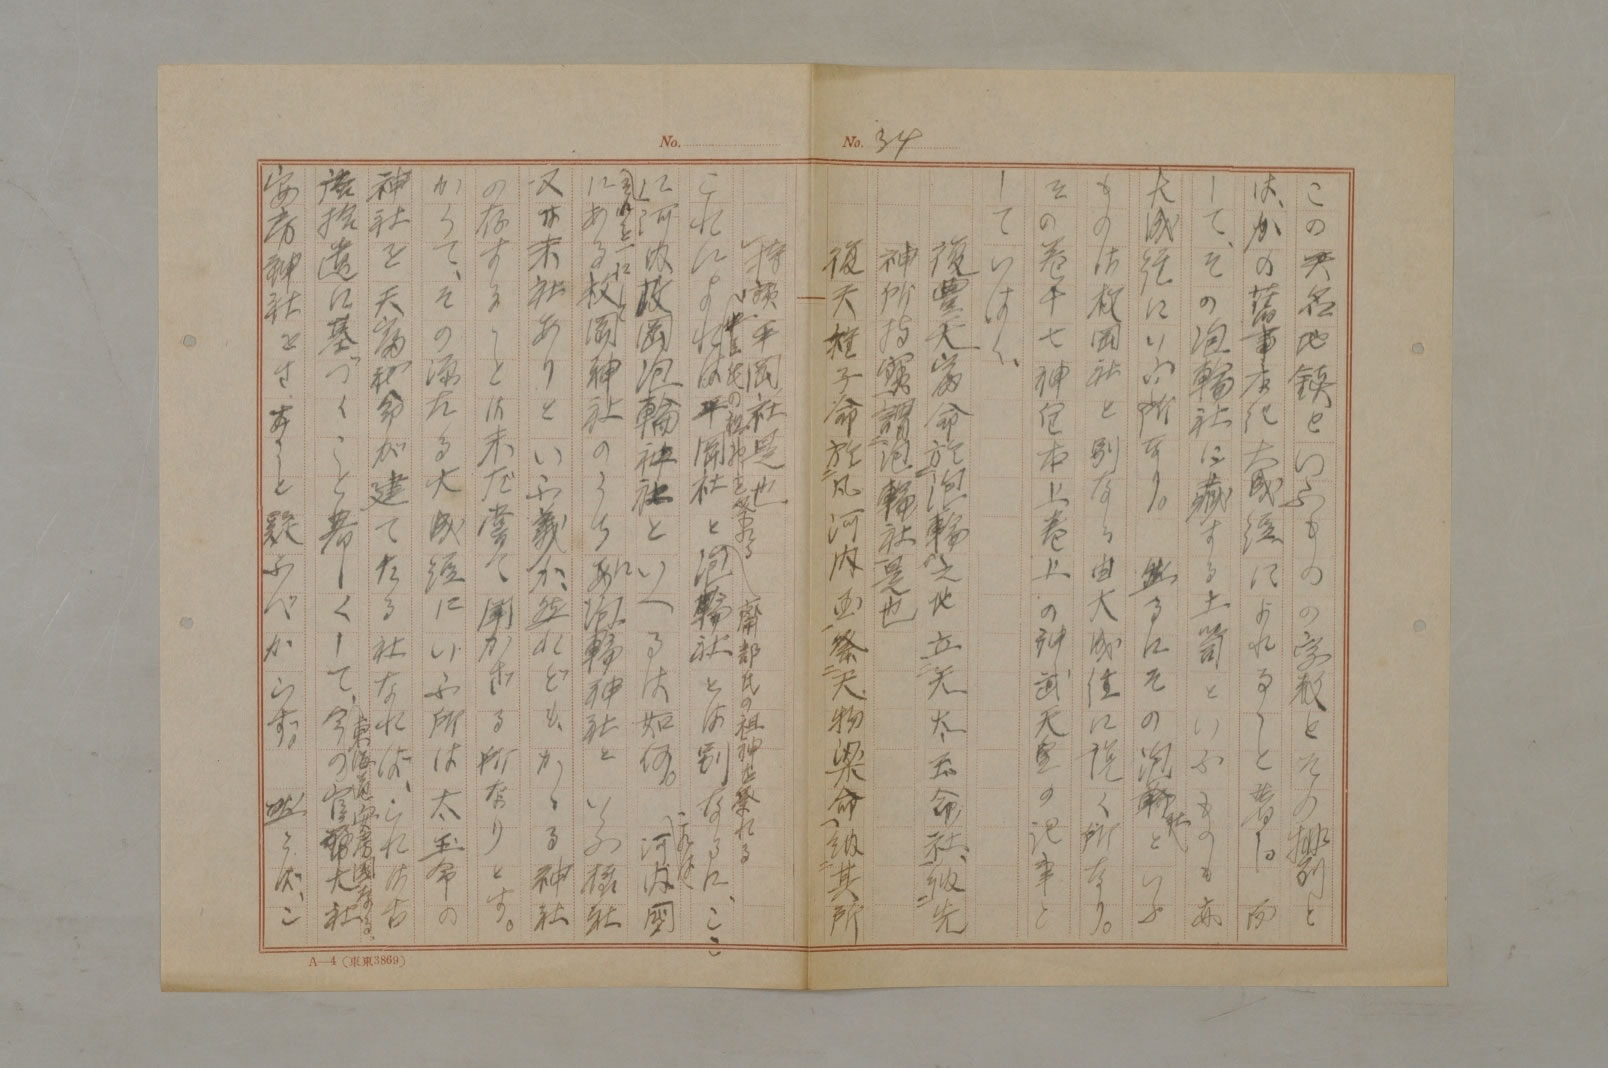 No. 34
この天名地鎮といふものの字数とその排列と
は、かの舊事本紀大成經によれること著し。而
して、その泡輪社に藏する土笥といふものも亦
大成經にいふ所なり。然るにその泡輪社といふ
ものは枚岡社と別なる由大成經に説く所なり。
その巻十七神皇本上巻上の神武天皇の記事と
していはく、
復豊天富命於泡輪宮地立天太玉命社、級先
神所持寶謂泡輪社是也
復天種子命於凡河内国祭天物梁命、級其所
No.
持璜平岡社是也
これによれば平岡社(中臣氏の祖神を祭れる)と泡輪社(齋部氏の祖神を祭れる)とは別なるに、ここ
に河内枚岡泡輪神社といへるは如何。これは河内國
にある枚岡神社のうちに泡輪神社といふ攝社
又は末社ありといふ義か、然れども、かゝる神社
の存することは未だ嘗て聞かざる所なりとす。
かくて、その源たる大成經にいふ所は太玉命の
神社を天富命が建てたる社なれば、これは古
語拾遺に基づくこと著しくして、東海道安房國なる、今の官幣大社
安房神社をさすこと疑ふべからず。然らば、こ
A—4(東東3869)